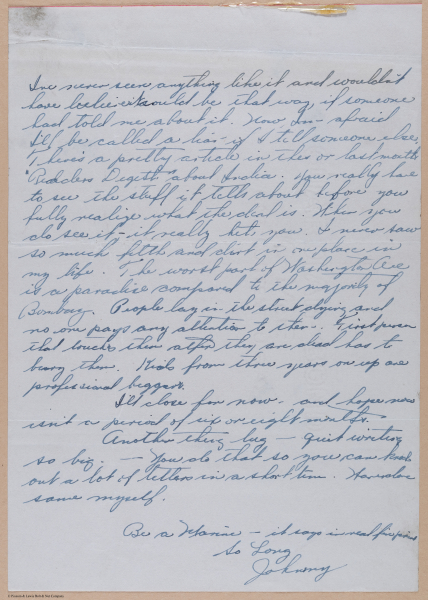 I've never seen anything like it and wouldn't
have believed it would be that way if someone
had told me about it. Now Im afraid
I'll be called a liar if I tell someone else.
There's a pretty article in this or last month
"Readers Digest" about India. You really have
to see the stuff it tells about before you
fully realize what the deal is. When you
do see it - it really gets you. I never saw
so much filth and dirt in one place in
my life. The worst part of Washington Ave
is a paradise compared to the majority of
Bombay. People lay in the street dying and
no one pays any attention to them. First person
that touches them after they are dead has to
bury them. Kids from three years on up are
professional beggars.
I'll close for now - and hope now
isn't a period of six or eight months.
Another thing - quit writing
so big. - You do that so you can knock
out a lot of letters in a short time. Have done
same myself.
Be a Marine - it says in real fine print
So Long
Johnny